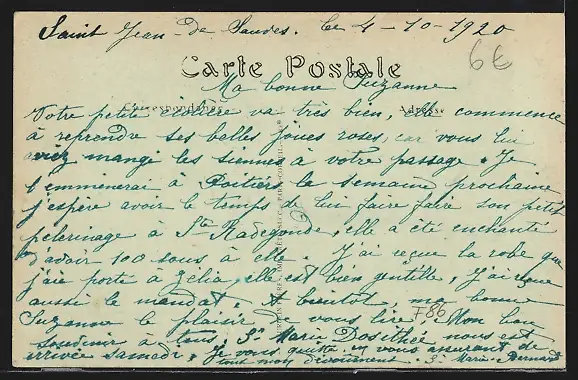 Saint Jean-de Sauves. le 4-10-1920
6€
Carte Postale
Ma bonne Suzanne
Correspondance
Adresse
Votre petite écolière va très bien, elle commence
à reprendre ses belles joues roses, car vous lui
aviez mangé les siennes à votre passage. Je
l'emmènerai à Poitiers la semaine prochaine
j'espère avoir le temps de lui faire faire son petit
pèlerinage à Ste Radegonde, elle a été enchantée
d'avoir 100 sous à elle. J'ai reçue la robe que
j'ai porté à Zélia, elle est bien gentille, J'ai reçue
aussi le mandat. A bientôt, ma bonne
Suzanne le plaisir de vous lire. Mon bon
786
souvenir à tous, Sr Marie Dosithée nous est
arrivée samedi, Je vous quitte en vous assurant de
tout mon dévouement. Sr Marie-Bernard